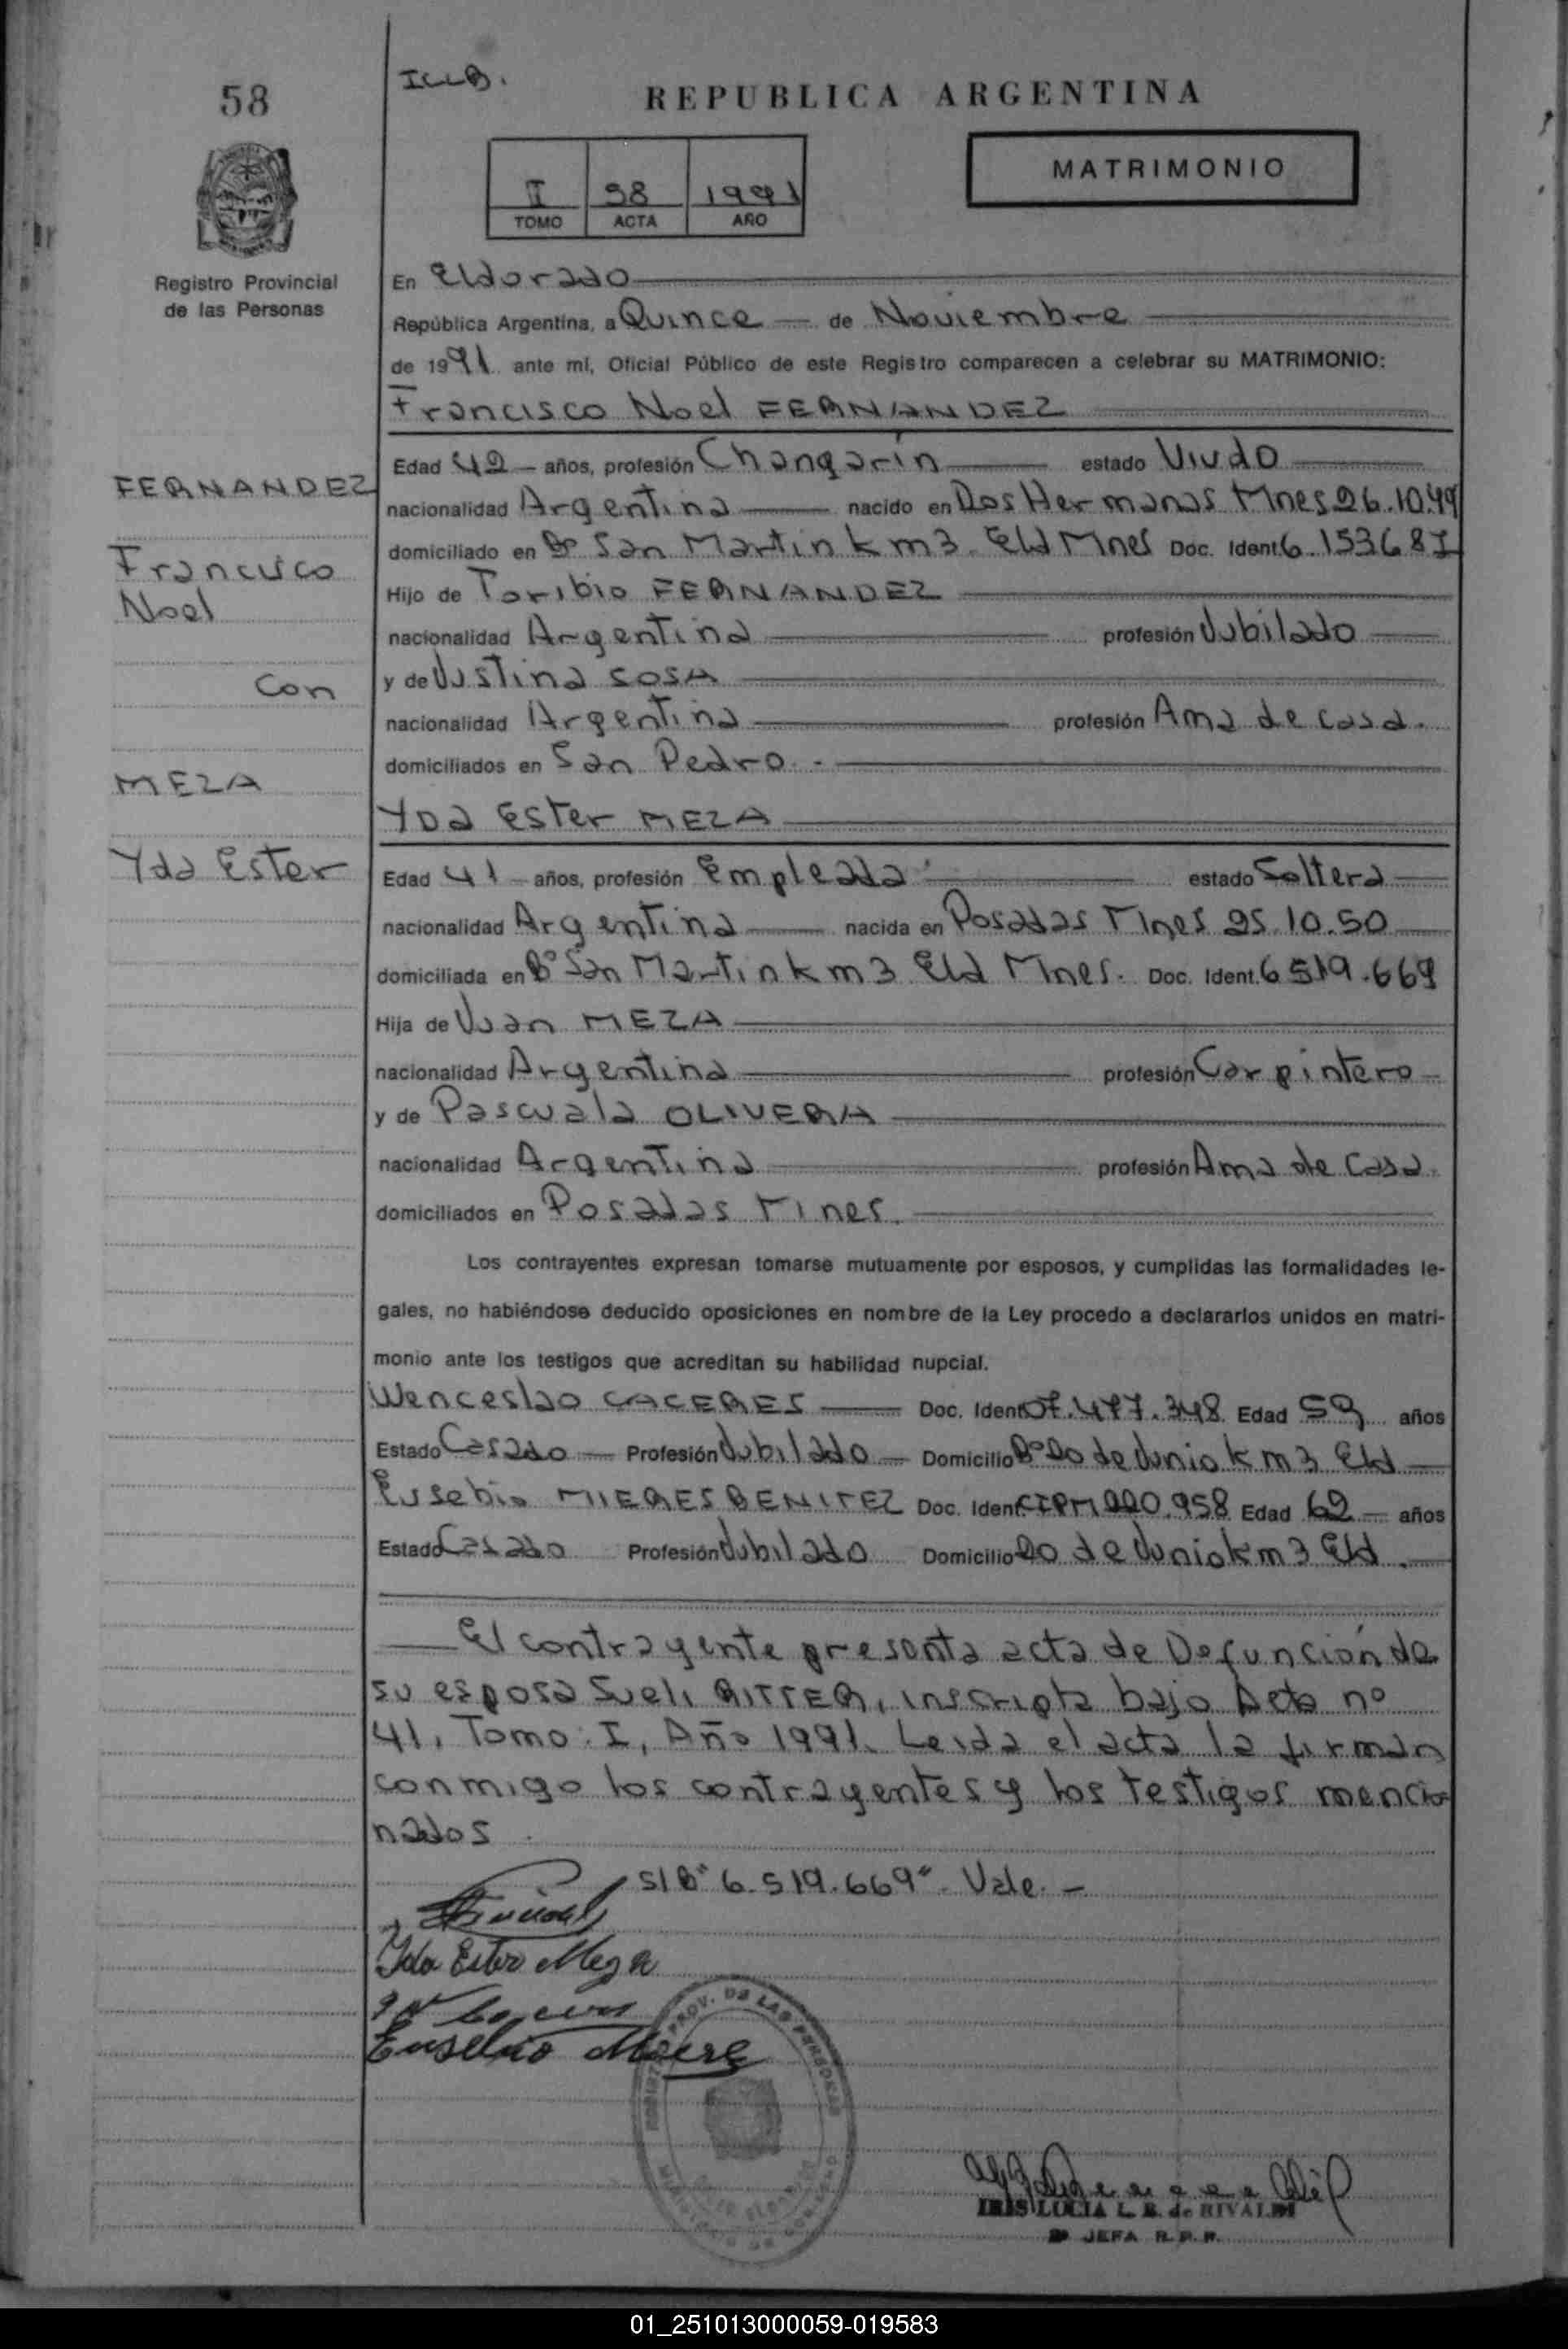 58
ILLB.
REPUBLICA ARGENTINA
I 58 1991
TOMO ACTA AÑO
MATRIMONIO
Registro Provincial
de las Personas
En Eldorado
República Argentina, a Quince de Noviembre
de 1991 ante mí, Oficial Público de este Registro comparecen a celebrar su MATRIMONIO:
Francisco Noel FERNANDEZ
FERNANDEZ
Francisco
Noel
con
MEZA
Yda Ester
Edad 42 años, profesión Changarín estado Viudo
nacionalidad Argentina nacido en Dos Hermanas Mnes 26.10.49
domiciliado en Bº San Martin km3. Eld Mnes Doc. Ident.
Hijo de Toribio FERNANDEZ
nacionalidad Argentina profesión Jubilado
y de Justina SOSA
nacionalidad Argentina profesión Ama de casa.
domiciliados en San Pedro.
YDa Ester MEZA
Edad 41 años, profesión Empleada estado Soltera
nacionalidad Argentina nacida en Posadas Mnes 25.10.50
domiciliada en Bº San Martin km3 Eld Mnes. Doc. Ident. 6519.669
Hija de Juan MEZA
nacionalidad Argentina profesión Carpintero
y de Pascuala OLIVERA
nacionalidad Argentina profesión Ama de Casa.
domiciliados en Posadas Mnes.
Los contrayentes expresan tomarse mutuamente por esposos, y cumplidas las formalidades le-
gales, no habiéndose deducido oposiciones en nombre de la Ley procedo a declararlos unidos en matri-
monio ante los testigos que acreditan su habilidad nupcial.
Wenceslao CACERES Doc. Ident. Edad 59 años
Estado Casado Profesión Jubilado Domicilio Bº 20 de Junio km3 Eld
Eusebio MIERES BENITEZ Doc. Ident. CIPM 220.958 Edad 62 años
Estado Casado Profesión Jubilado Domicilio 20 de Junio km3 Eld.
El contrayente presenta acta de Defunción de
su esposa Sueli RITTER, inscripta bajo Acta nº
41, Tomo: I, Año 1991. Leida el acta la firman
conmigo los contrayentes y los testigos mencio
nados.
S/B "6.519.669". Vale.-
Ida Ester Meza
Eusebio Miere
PROV. DE LAS PERSONAS
IRIS LUCIA L. B. de RIVALDI
JEFA R. P. P.
01_251013000059-019583